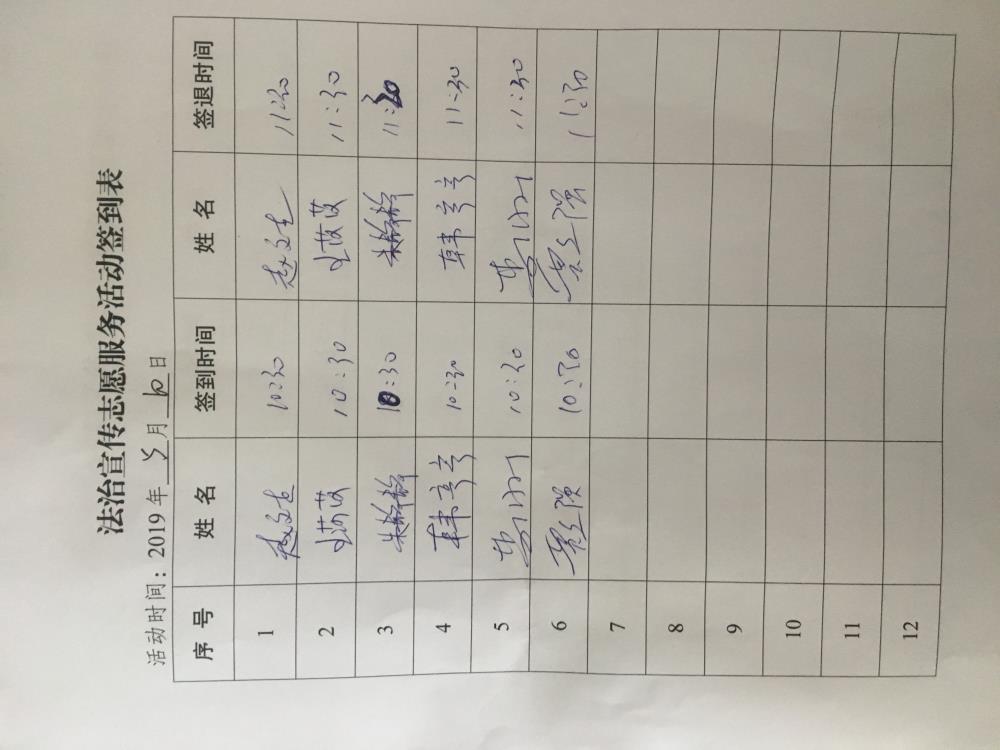 法治宣传志愿服务活动签到表
活动时间：2019年 5月 10日
序号 姓名 签到时间 姓名 签退时间
1 10:30 11:30
2 10:30 11:30
3 10:30 11:30
4 韩亭亭 10:30 韩亭亭 11:30
5 10:30 11:30
6 10:30 11:30
7
8
9
10
11
12